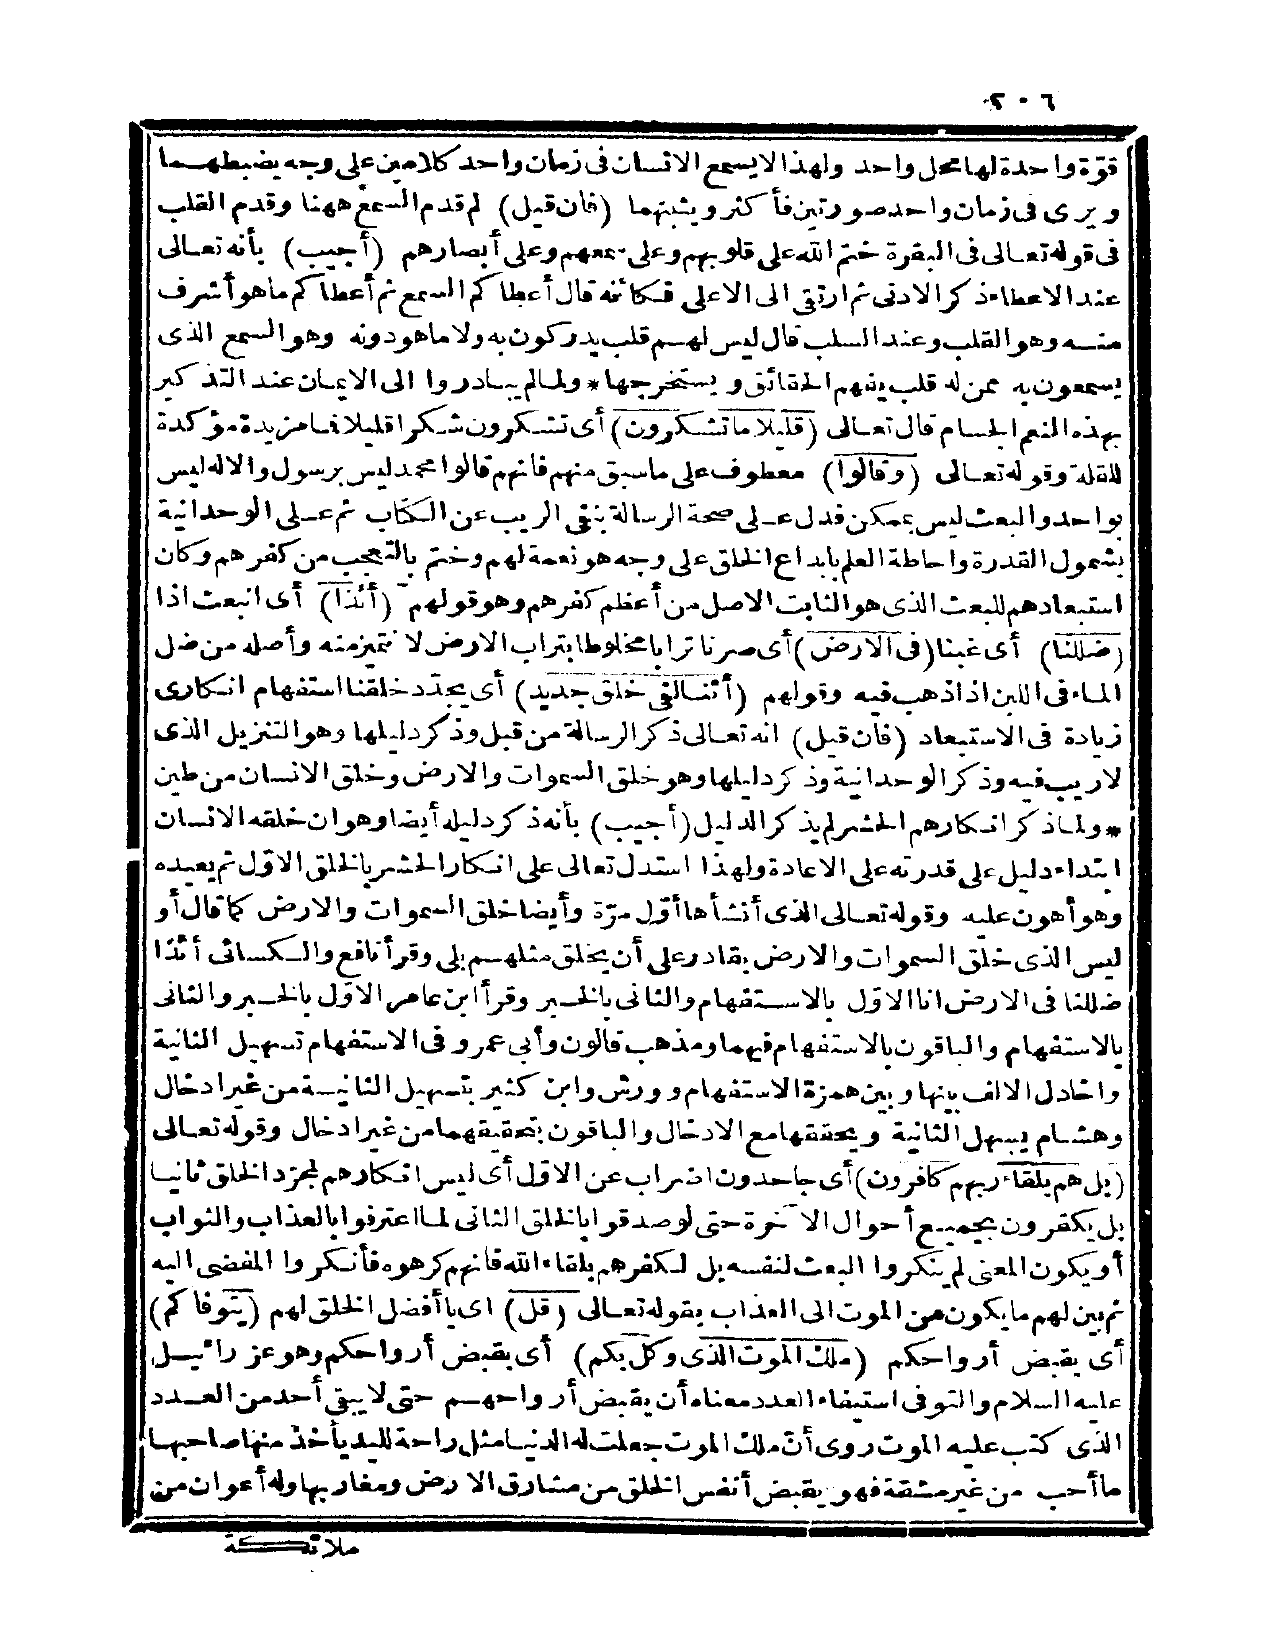 ٢٠٦
قوّة واحدة لها محل واحد ولهذا لا يسمع الانسان فى زمان واحد كلامين على وجه يضبطهما
ويرى فى زمان واحد صورتين فأكثر ويثبتهما (فان قيل) لم قدم السمع ههنا وقدم القلب
فى قوله تعالى فى البقرة ختم الله على قلوبهم وعلى سمعهم وعلى أبصارهم (أجيب) بأنه تعالى
عند الاعطاء ذكر الادنى ثم ارتقى الى الاعلى فكأنه قال أعطاكم السمع ثم أعطاكم ما هو أشرف
منه وهو القلب وعند السلب قال ليس لهم قلب يدركون به ولا ما هو دونه وهو السمع الذى
يسمعون به ممن له قلب يفهم الحقائق ويستخرجها * ولما لم يبادروا الى الايمان عند التذكير
بهذه النعم الجسام قال تعالى (قليلا ما تشكرون) أى تشكرون شكرا قليلا فما مزيدة مؤكدة
للقلة وقوله تعالى (وقالوا) معطوف على ما سبق منهم فانهم قالوا محمد ليس برسول والاله ليس
بواحد والبعث ليس بممكن فدل على صحة الرسالة بنفى الريب عن الكتاب ثم على الوحدانية
بشمول القدرة واحاطة العلم بابداع الخلق على وجه هو نعمة لهم وختم بالتعجب من كفرهم وكان
استبعادهم للبعث الذى هو الثابت الاصل من أعظم كفرهم وهو قولهم (أئذا) أى انبعث اذا
(ضللنا) أى غبنا (فى الارض) أى صرنا ترابا مخلوطا بتراب الارض لا نتميز منه وأصله من ضل
الماء فى اللبن اذا ذهب فيه وقولهم (أئنا لفى خلق جديد) أى يجدّد خلقنا استفهام انكارى
زيادة فى الاستبعاد (فان قيل) انه تعالى ذكر الرسالة من قبل وذكر دليلها وهو التنزيل الذى
لا ريب فيه وذكر الوحدانية وذكر دليلها وهو خلق السموات والارض وخلق الانسان من طين
* ولما ذكر انكارهم الحشر لم يذكر الدليل (أجيب) بأنه ذكر دليله أيضا وهو ان خلقه الانسان
ابتداء دليل على قدرته على الاعادة ولهذا استدل تعالى على انكار الحشر بالخلق الاوّل ثم يعيده
وهو أهون عليه وقوله تعالى الذى أنشأها أوّل مرّة وأيضا خلق السموات والارض كما قال أو
ليس الذى خلق السموات والارض بقادر على أن يخلق مثلهم بلى وقرأ نافع والكسائى أئذا
ضللنا فى الارض انا الاوّل بالاستفهام والثانى بالخبر وقرأ ابن عامر الاوّل بالخبر والثانى
بالاستفهام والباقون بالاستفهام فيهما ومذهب قالون وأبى عمرو فى الاستفهام تسهيل الثانية
وادخال الالف بينها وبين همزة الاستفهام وورش وابن كثير بتسهيل الثانية من غير ادخال
وهشام يسهل الثانية ويحققها مع الادخال والباقون بتحقيقهما من غير ادخال وقوله تعالى
(بل هم بلقاء ربهم كافرون) أى جاحدون اضراب عن الاوّل أى ليس انكارهم لمجرّد الخلق ثانيا
بل يكفرون بجميع أحوال الآخرة حتى لو صدقوا بالخلق الثانى لما اعترفوا بالعذاب والثواب
أو يكون المعنى لم ينكروا البعث لنفسه بل لكفرهم بلقاء الله فانهم كرهوه فأنكروا المفضى اليه
ثم بين لهم ما يكون من الموت الى العذاب بقوله تعالى (قل) اى يا أفضل الخلق لهم (يتوفاكم)
أى يقبض أرواحكم (ملك الموت الذى وكل بكم) أى يقبض أرواحكم وهو عزرائيل
عليه السلام والتوفى استيفاء العدد معناه أن يقبض أرواحهم حتى لا يبقى أحد من العدد
الذى كتب عليه الموت روى أنّ ملك الموت جعلت له الدنيا مثل راحة لليد يأخذ منها صاحبها
ما أحب من غير مشقة فهو يقبض أنفس الخلق من مشارق الارض ومغاربها وله أعوان من
ملائكة